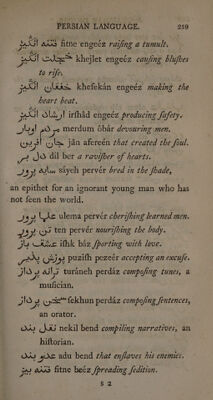 PERSIAN LANGUAGE. 259
فتنه انگیز fitne engeéz raiſing a tumult.
خجلت انگیز khejlet engeéz cauſing bluſhes
to riſe.
خفقان انگیز khefekán engeéz making the
heart beat.
ارشاد انگیز irſhád engeéz producing ſafety.
مردم اوبار merdum óbár devouring men.
جان آفرین ján afereén that created the ſoul.
دل بر dil ber a raviſher of hearts.
سایه پرور sáyeh pervér bred in the ſhade,
an epithet for an ignorant young man who has
not ſeen the world.
علما پرور ulema pervér cheriſhing learned men.
تن پرور ten pervér nouriſhing the body.
عشق باز iſhk báz ſporting with love.
پوزش پذیر puziſh pezeér accepting an excuſe.
ترانه پرداز turáneh perdáz compoſing tunes, a
muſician.
سخن پرداز ſekhun perdáz compoſing ſentences,
an orator.
نقل بند nekil bend compiling narratives, an
hiſtorian.
عدو بند adu bend that enſlaves his enemies.
فتنه بیز fitne beéz ſpreading ſedition.
S 2